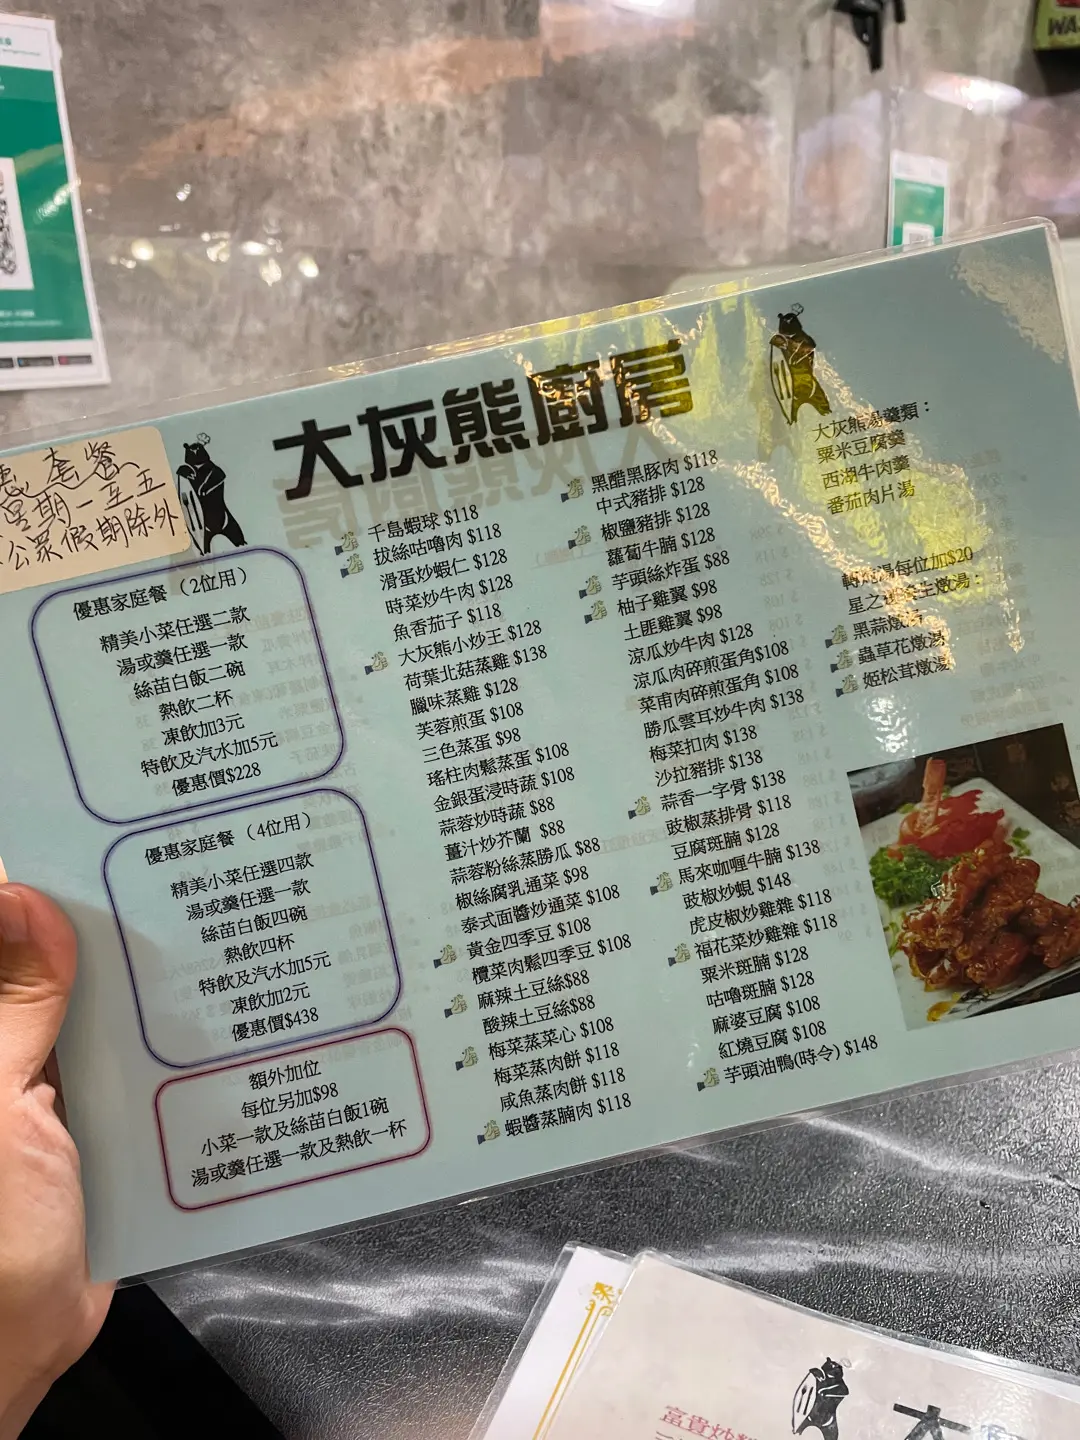 大灰熊廚房
套餐
星期一至五
公眾假期除外
優惠家庭餐（2位用）
精美小菜任選二款
湯或羹任選一款
絲苗白飯二碗
熱飲二杯
凍飲加3元
特飲及汽水加5元
優惠價$228
優惠家庭餐（4位用）
精美小菜任選四款
湯或羹任選一款
絲苗白飯四碗
熱飲四杯
特飲及汽水加5元
凍飲加2元
優惠價$438
額外加位
每位另加$98
小菜一款及絲苗白飯1碗
湯或羹任選一款及熱飲一杯
千島蝦球 $118
拔絲咕嚕肉 $118
滑蛋炒蝦仁 $128
時菜炒牛肉 $128
魚香茄子 $118
大灰熊小炒王 $128
荷葉北菇蒸雞 $138
臘味蒸雞 $128
芙蓉煎蛋 $108
三色蒸蛋 $98
瑤柱肉鬆蒸蛋 $108
金銀蛋浸時蔬 $108
蒜蓉炒時蔬 $88
薑汁炒芥蘭 $88
蒜蓉粉絲蒸勝瓜 $88
椒絲腐乳通菜 $98
泰式面醬炒通菜 $108
黃金四季豆 $108
欖菜肉鬆四季豆 $108
麻辣土豆絲$88
酸辣土豆絲$88
梅菜蒸菜心 $108
梅菜蒸肉餅 $118
咸魚蒸肉餅 $118
蝦醬蒸腩肉 $118
黑醋黑豚肉 $118
中式豬排 $128
椒鹽豬排 $128
蘿蔔牛腩 $128
芋頭絲炸蛋 $88
柚子雞翼 $98
土匪雞翼 $98
涼瓜炒牛肉 $128
涼瓜肉碎煎蛋角$108
菜甫肉碎煎蛋角 $108
勝瓜雲耳炒牛肉 $138
梅菜扣肉 $138
沙拉豬排 $138
蒜香一字骨 $138
豉椒蒸排骨 $118
豆腐斑腩 $128
馬來咖喱牛腩 $138
豉椒炒蜆 $148
虎皮椒炒雞雜 $118
福花菜炒雞雜 $118
粟米斑腩 $128
咕嚕斑腩 $128
麻婆豆腐 $108
紅燒豆腐 $108
芋頭油鴨(時令) $148
大灰熊湯羹類：
粟米豆腐羹
西湖牛肉羹
番茄肉片湯
轉燉湯每位加$20
黑蒜燉湯
蟲草花燉湯
姬松茸燉湯
WA
富貴炒
大